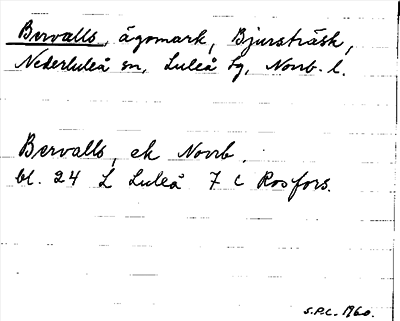 Bervalls, ägomark, Bjursträsk,
Nederluleå sn, Luleå tg, Norrb. l.
Bervalls, ek Norrb.
bl. 24 L Luleå 7 c Rosfors.
S.P.L. 1960.